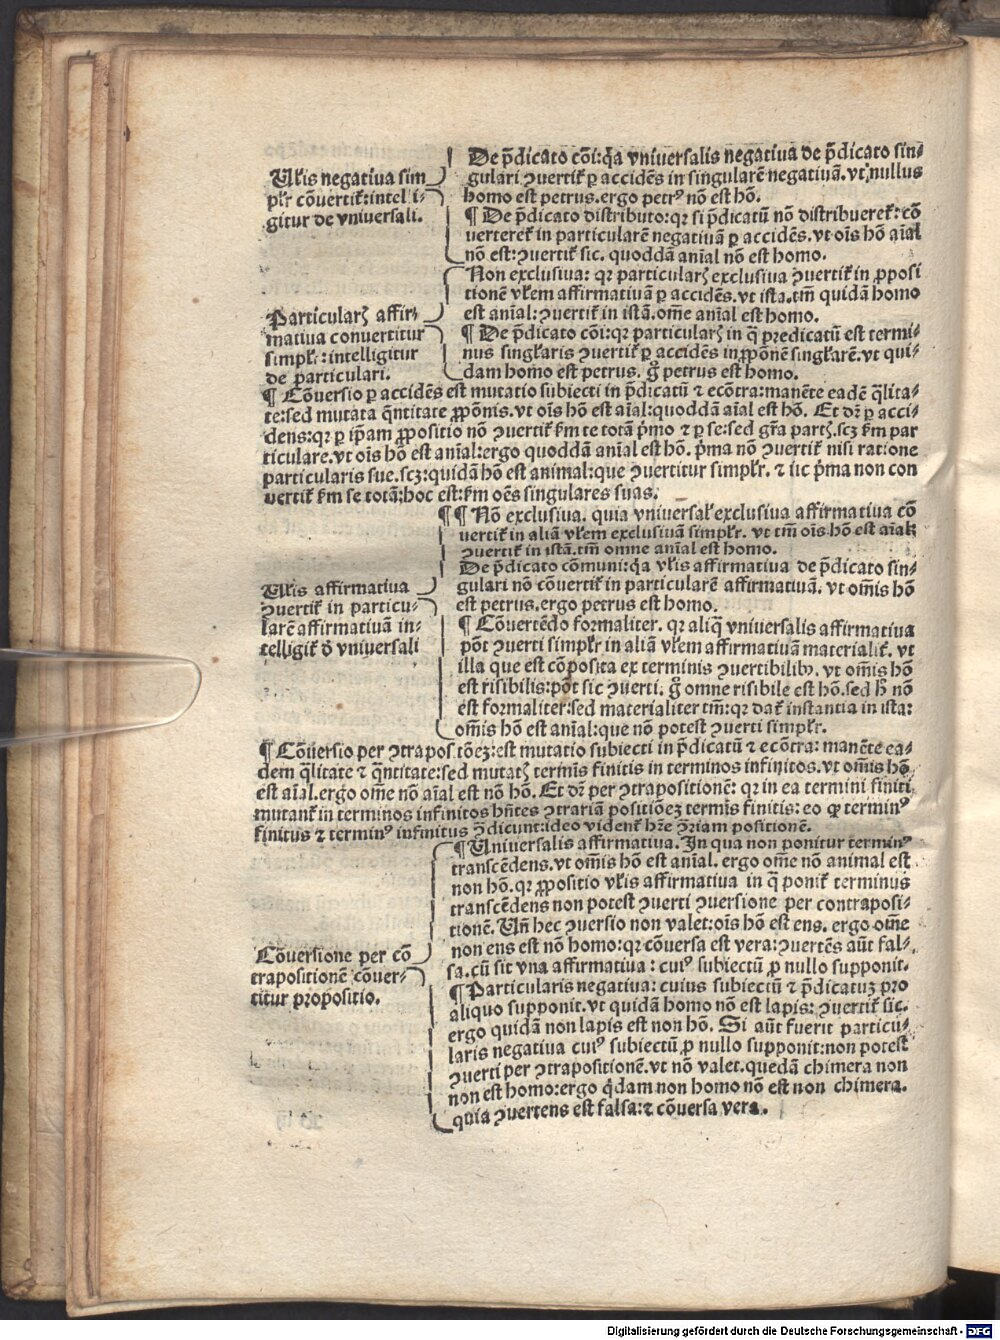 Ul̄is negativa sim
pl̄r cōvertit᷒: intelli-
gitur de vniversali.
De p̄dicato cōi: q̄a vniversalis negativa de p̄dicato sin-
gulari ꝯvertit᷒ ꝑ accidēs in singularē negativā. vt, nullus
homo est petrus. ergo petrꝰ nō est hō.
¶ De p̄dicato distributo: qꝛ si p̄dicatū nō distribueret᷒: cō
verteret᷒ in particularē negativā ꝑ accidēs. vt oīs hō aīal
nō est: ꝯvertit᷒ sic. quoddā anīal nō est homo.
Particularꝭ affir-
mativa convertitur
simpl̄r: intelligitur
de particulari.
Non exclusiva: qꝛ particularꝭ exclusiva ꝯvertit᷒ in ꝓposi
tionē vl̄em affirmativā ꝑ accidēs. vt ista. tm̄ quidā homo
est anīal: ꝯvertit᷒ in istā. om̄e anīal est homo.
¶ De p̄dicato cōi: qꝛ particularꝭ in q̄ predicatū est termi-
nus singl̄aris ꝯvertit᷒ ꝑ accidēs in ꝓpōnē singl̄arē. vt qui-
dam homo est petrus. g̊ petrus est homo.
¶ Cōversio ꝑ accidēs est mutatio subiecti in p̄dicatū ⁊ ecōtra: manēte eadē q̄lita-
te: sed mutata q̄ntitate ꝓpōnis. vt oīs hō est aīal: quoddā aīal est hō. Et dr̄ ꝑ acci-
dens: qꝛ ꝑ ip̄am ꝓpositio nō ꝯvertit᷒ fm̄ te totā p̄mo ⁊ ꝑ se: sed gr̄a partꝭ. scꝫ fm̄ par
ticulare. vt oīs hō est anīal: ergo quoddā anīal est hō. p̄ma nō ꝯvertit᷒ nisi ratione
particularis sue. scꝫ: quidā hō est animal: que ꝯvertitur simpl̄r. ⁊ sic p̄ma non con
vertit᷒ fm̄ se totā: hoc est: fm̄ oēs singulares suas.
Ul̄is affirmativa
ꝯvertit᷒ in particu-
larē affirmativā in-
telligit᷒ ō vniversali
¶ ¶ Nō exclusiva. quia vniversal᷒ exclusiva affirmativa cō
vertit᷒ in aliā vl̄em exclusivā simpl̄r. vt tm̄ oīs hō est aīal:
ꝯvertit᷒ in istā. tm̄ omne anīal est homo.
De p̄dicato cōmuni: q̄a vl̄is affirmativa de p̄dicato sin-
gulari nō cōvertit᷒ in particularē affirmativā. vt om̄is hō
est petrus. ergo petrus est homo.
¶ Cōvertēdo formaliter. qꝛ aliq̄ vniversalis affirmativa
pōt ꝯverti simpl̄r in aliā vl̄em affirmativā materialit᷒. vt
illa que est cōposita ex terminis ꝯvertibilibꝰ. vt om̄is hō
est risibilis: pōt sic ꝯverti. g̊ omne risibile est hō. sed h̄ nō
est formaliter: sed materialiter tm̄: qꝛ dat᷒ instantia in ista:
om̄is hō est anīal: que nō potest ꝯverti simpl̄r.
¶ Cōversio per ꝯtrapositōeꝫ: est mutatio subiecti in p̄dicatū ⁊ ecōtra: manēte ea-
dem q̄litate ⁊ q̄ntitate: sed mutatꝭ termīs finitis in terminos infinitos. vt om̄is hō
est aīal. ergo om̄e nō aīal est nō hō. Et dr̄ per ꝯtrapositionē: qꝛ in ea termini finiti
mutant᷒ in terminos infinitos hn̄tes ꝯtrariā positiōeꝫ termīs finitis: eo ꝙ terminꝰ
finitus ⁊ terminꝰ infinitus ꝯ̄dicunt: ideo vident᷒ hr̄e ꝯ̄riam positionē.
Cōversione per cō
trapositionē cōver-
titur propositio.
¶ Universalis affirmativa. In qua non ponitur terminꝰ
transcēdens. vt om̄is hō est anīal. ergo om̄e nō animal est
non hō. qꝛ ꝓpositio vl̄is affirmativa in q̄ ponit᷒ terminus
transcēdens non potest ꝯverti ꝯversione per contraposi-
tionē. Un̄ hec ꝯversio non valet: oīs hō est ens. ergo om̄e
non ens est nō homo: qꝛ cōversa est vera: ꝯvertēs aūt fal-
sa. cū sit vna affirmativa: cuiꝰ subiectū ꝓ nullo supponit.
¶ Particularis negativa: cuius subiectū ⁊ p̄dicatuꝫ pro
aliquo supponit. vt quidā homo nō est lapis: ꝯvertit᷒ sic.
ergo quidā non lapis est non hō. Si aūt fuerit particu-
laris negativa cuiꝰ subiectū ꝓ nullo supponit: non potest
ꝯverti per ꝯtrapositionē. vt nō valet. quedā chimera non
non est homo: ergo q̄dam non homo nō est non chimera.
quia ꝯvertens est falsa: ⁊ cōversa vera.
Digitalisierung gefördert durch die Deutsche Forschungsgemeinschaft - DFG